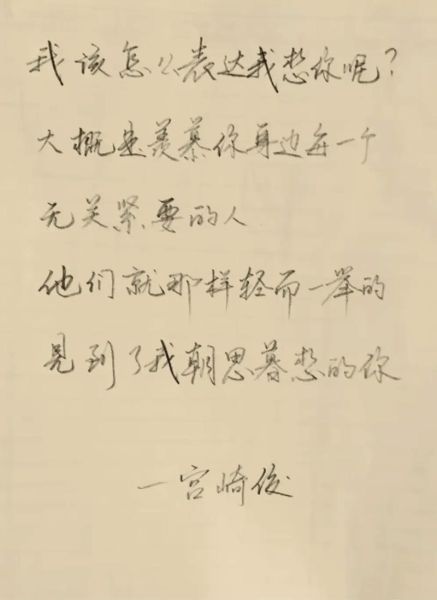 我该怎么表达我想你呢?
大概是羡慕你身边每一个
无关紧要的人
他们就那样轻而一举的
见到了我朝思暮想的你
一宫崎俊